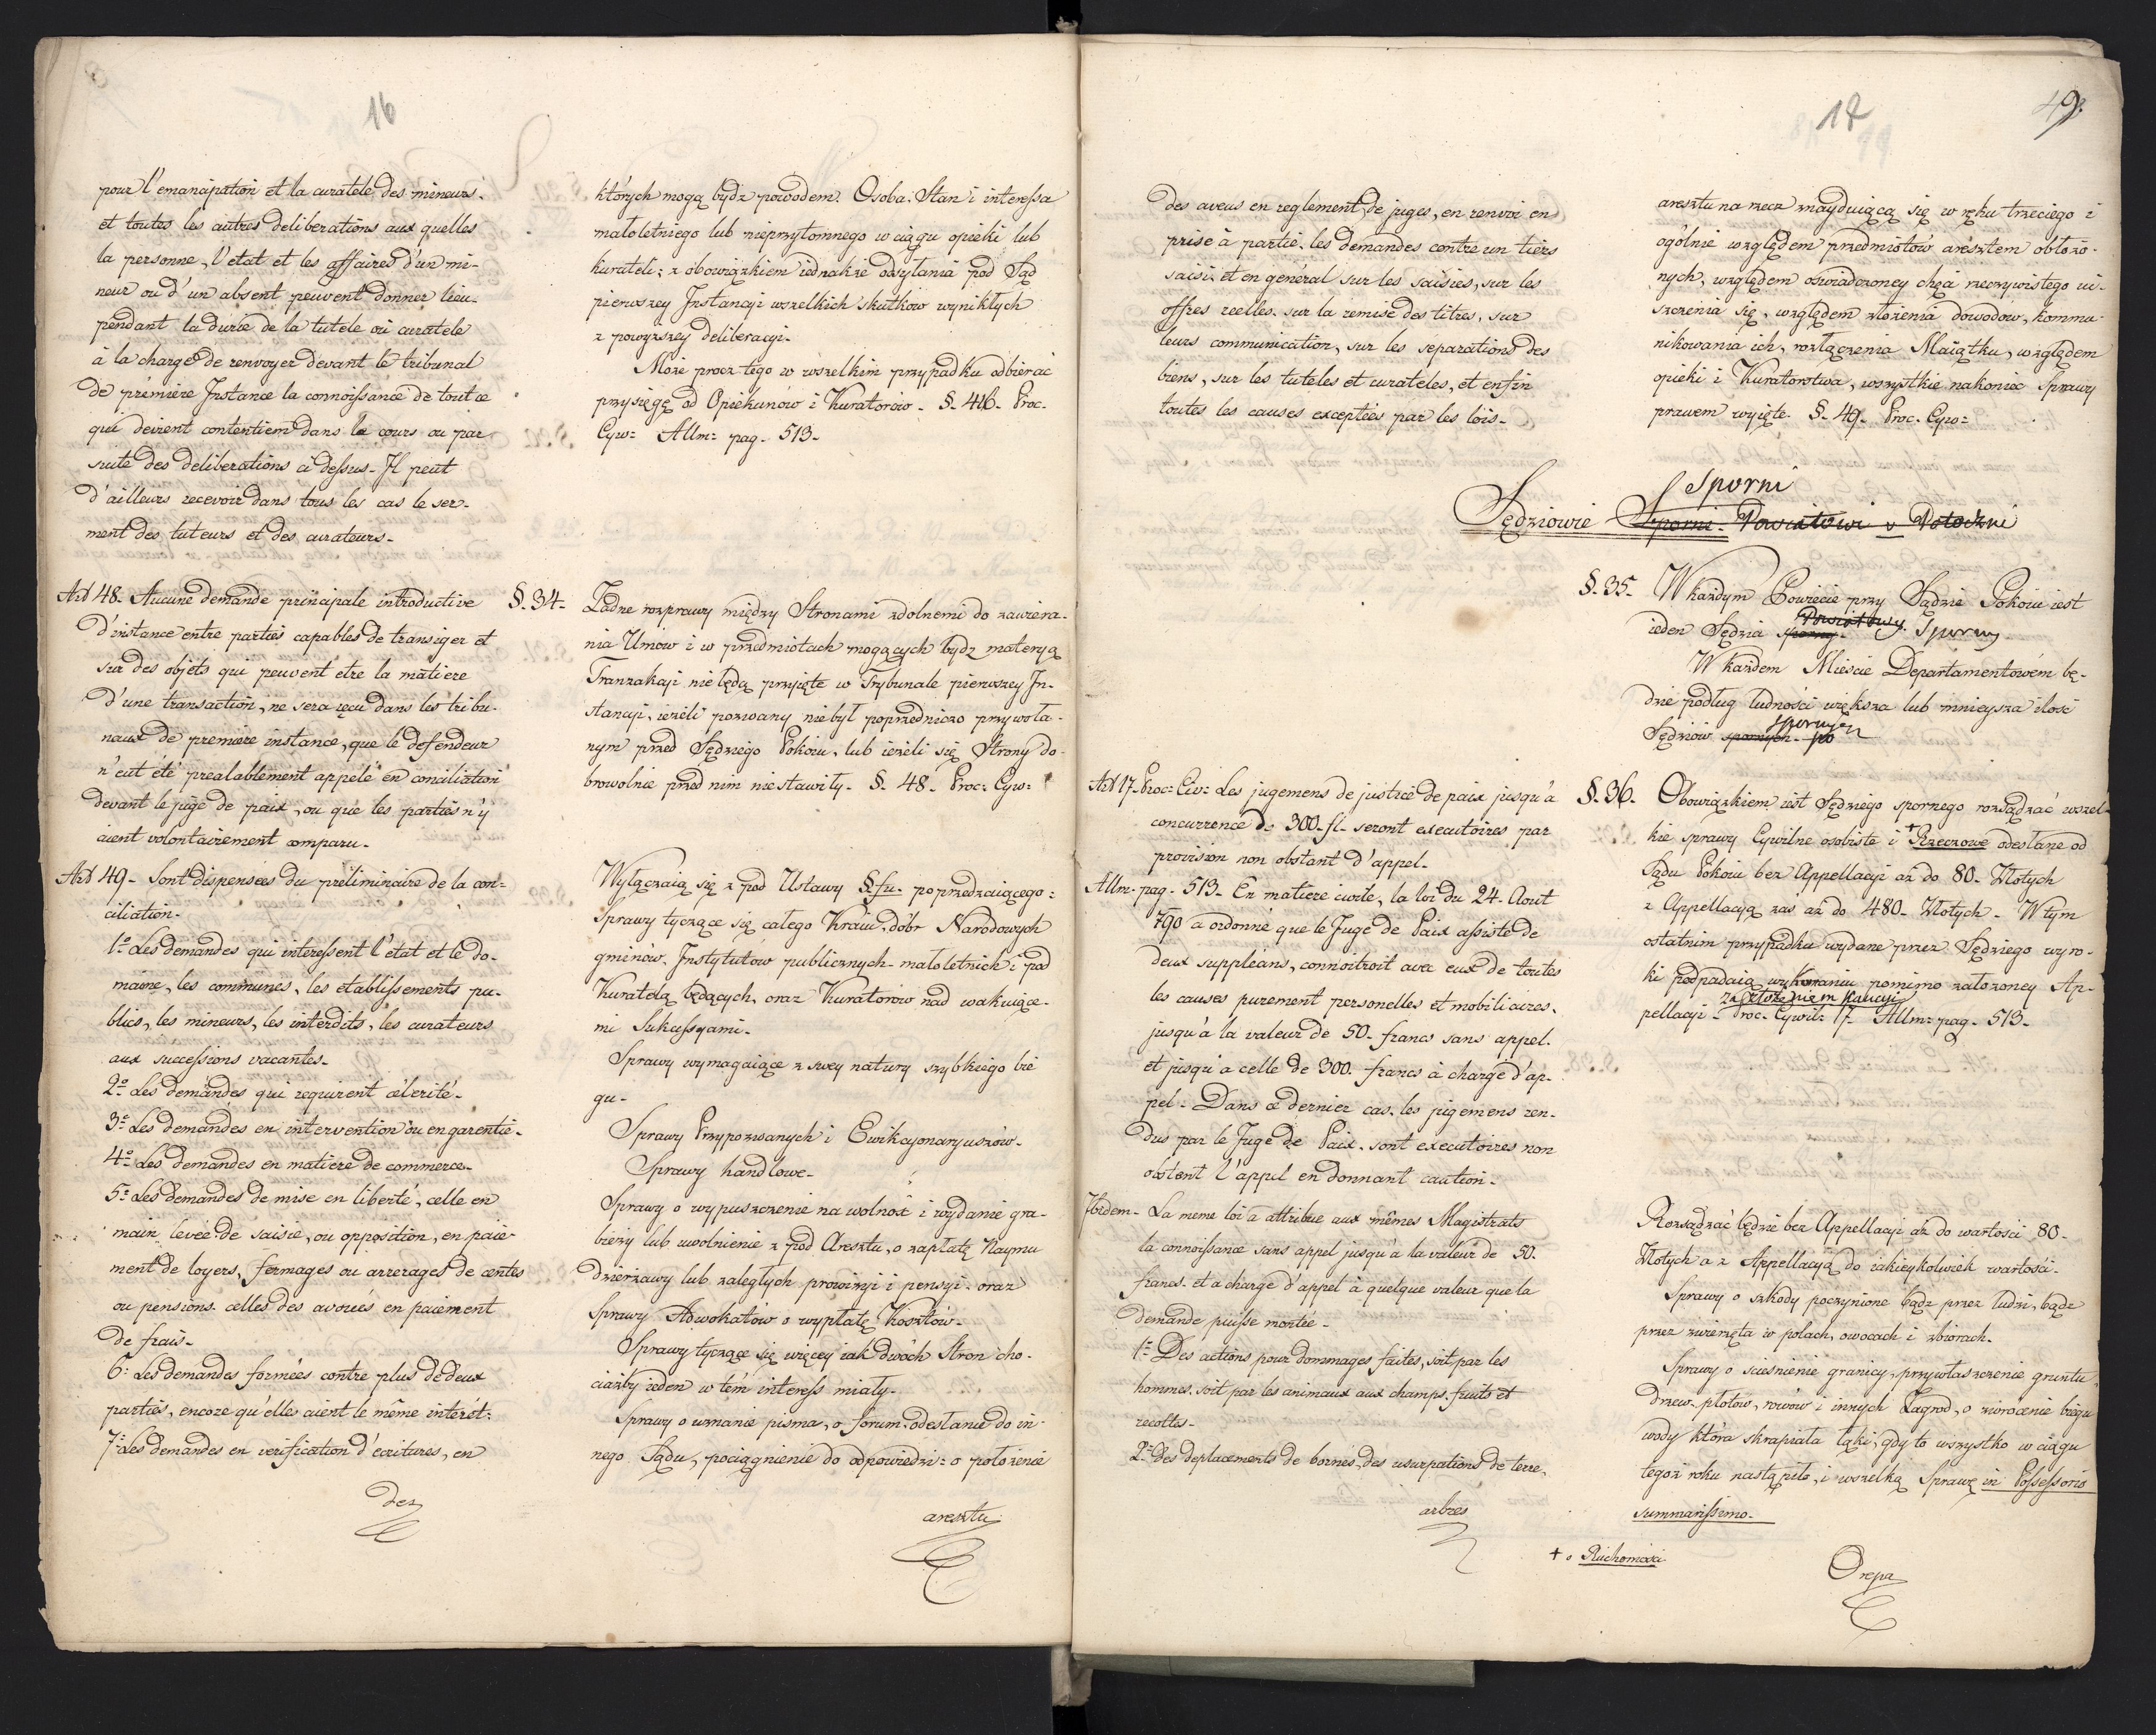 16
pour l'emancipation et la curatele des mineurs.
et toutes les autres deliberations aux quelles
la personne, l'etat et les affaires d'un mi-
neur ou d'un absent peuvent donner lieu-
pendant la durée de la tutele ou curatele
à la charge de renvoyer devant le tribunal
de première Instance la connoissance de tout ce
qui devient contentiem dans le cours ou par
suite des deliberations ci dessus- Il peut
d'ailleurs recevoir dans tous les cas le ser-
ment des tuteurs et des curateurs-
Art 48- Aucune demande principale introductive
d'instance entre parties capables de transiger et
sur des objets qui peuvent etre la matiere
d'une transaction, ne sera reçu dans les tribu-
naux de premiere instance, que le defendeur
n'eut été prealablement appelé en conciliation
devant le juge de paix, ou que les parties n'y
aient volontairement comparu-
Art 49- Sont dispensées du préliminaire de la con-
ciliation-
1° Les demandes qui interessent l'état et le do-
maine, les communes, les etablissements pu-
blics, les mineurs, les interdits, les curateurs
aux successions vacantes-
2° Les demandes qui requirent célerité-
3° Les demandes en intervention ou en garentie-
4° Les demandes en matiere de commerce-
5° Les demandes de mise en liberté, celle en
main levée de saisie, ou opposition, en paie-
ment de loyers, fermages ou arrerages de rentes
ou pensions. celles des avoués en paiement
de frais-
6: Les demandes formées contre plus de deux
parties, encore qu'elles aient le même interêt:
7: Les demandes en verification d'ecritures, en
des
których mogą bydź powodem. Osoba. Stan i interessa
małoletniego lub nieprzytomnego w ciągu opieki lub
kurateli; z obowiązkiem iednakże odsyłania pod Sąd
pierwszey Instancyi wszelkich skutków wynikłych
z powyższey deliberacyi-
Może procz tego w wszelkim przypadku odbierać
przysięgę od Opiekunów i Kuratorów- §. 416- Proc-
Cyw: Allm: pag- 513-
§. 34- Żadne rozprawy między Stronami zdolnemi do zawiera-
nia Umow i w przedmiotach mogących bydz materyą
Tranzakcyi nie będą przyięte w Trybunale pierwszey In-
stancyi, ieżeli pozwany niebył poprzedniczo przywoła-
nym przed Sędziego Pokoiu, lub ieżeli się Strony do-
browolnie przed nim nie stawiły- §. 48- Proc: Cyw:
Wyłączaią się z pod Ustawy §-fu- poprzedzaiącego:
Sprawy tyczące się całego Kraiu, dóbr Narodowych
gminów, Instytutów publicznych- małoletnich i pod
Kuratelą będących, oraz Kuratorów nad wakuiące-
mi Sukcessyami-
Sprawy wymagaiące z swey natury szybkiego bie
gu-
Sprawy Przypozwanych i Ewikcyonaryuszów-
Sprawy handlowe-
Sprawy o wypuszczenie na wolnosć i wydanie gra-
bieży lub uwolnienie z pod Aresztu, o zapłatę Naymu
dzierżawy lub zaległych prowizyi i pensyi- oraz
Sprawy Adwokatów o wypłatę Kosztów-
Sprawy tyczące się więcey iak dwóch Stron cho-
ciażby ieden w tém interess miały-
Sprawy o uznanie pisma, o forum, odesłanie do in-
nego Sądu, pociągnienie do odpowiedzi: o położenie
aresztu
17
49.
des aveus en reglement de juges, en renvoi en
prise à partie, les demandes contre un tiers
saisi: et en genéral sur les saisies, sur les
offres reelles. sur la remise des titres, sur
leurs communication, sur les separations des
biens, sur les tuteles et curateles, et enfin
toutes les causes exceptées par les lois-
aresztu na rzecz znayduiącą się w ręku trzeciego i
ogólnie względem przedmiotów aresztem obłożo-
nych, względem oświadczoney chęci rzeczywistego ui-
szczenia się, względem złożenia dowodow, kommu-
nikowania ich, rozłączenia Maiątku, względem
opieki i Kuratorstwa, wszystkie nakoniec Sprawy
prawem wyięte- §. 49- Proc- Cyw:
Sporni
Sędziowie Sporni- Powiatowi
§. 35- W każdym Powiecie przy Sądzie Pokoiu iest
Powiatowy
ieden Sędzia sporny. Sporny
W każdem Mieście Departamentowém bę-
dzie podług ludności większa lub mnieysza ilosć
spornych
Sędziów spornych- po
Art 17- Proc: Civ: Les jugemens de justice de paix jusqu'a
concurrence de 300- fl- seront executoires par
provision non obstant d'appel-
Allm- pag- 513- En matiere civile, la loi du 24- Aout
790 a ordonné que le Juge de Paix assisté de
deux suppleans, connoitroit avec eux de toutes
les causes purement personelles et mobiliaires.
jusqu'à la valeur de 50- francs sans appel.
et jusqu'a celle de 300- francs à charge d'ap-
pel- Dans ce dernier cas, les jugemens ren-
dus par le Juge de Paix- sont executoires non
obstent l'appel en donnant caution-
Ibidem- La meme loi a attribue aux mêmes Magistrats
la connoissance sans appel jusqu'à la valeur de 50-
francs- et a charge d'appel à quelque valeur que la
demande puisse montée-
1° Des actions pour dommages faites, soit par les
hommes, soit par les animaux aux champs, fruits et
recoltes-
2° Des deplacements de bornes, des usurpations de terre,
arbres
§. 36- Obowiązkiem iest Sędziego spornego rozsądzać wszel-
kie sprawy Cywilne osobiste i + Rzeczowe odesłane od
Sądu Pokoiu bez Appellacyi aż do 80- Złotych
z Appellacyą zaś aż do 480- Złotych- W tym
ostatnim przypadku wydane przez Sędziego wyro-
ki podpadaią wykonaniu pomimo założoney Ap-
za złożeniem Kaucyi
pellacyi- Proc- Cywil: 17- Allm: pag- 513-
Rozsądzać będzie bez Appellacyi aż do wartości 80-
Złotych a z Appellacyą do iakieykolwiek wartości-
Sprawy o szkody poczynione bądź przez ludzi, bądz
przez zwierzęta w polach, owocach i zbiorach-
Sprawy o scieśnienie granicy, przywłaszczenie gruntu,
drzew, płotów, rowów i innych Zagrod, o zwrocenie biegu
wody która skrapiała łąki, gdy to wszystko w ciągu
tegoż roku nastąpiło, i wszelką Sprawę in Possessoris
summarissimo-
+ o Ruchomości